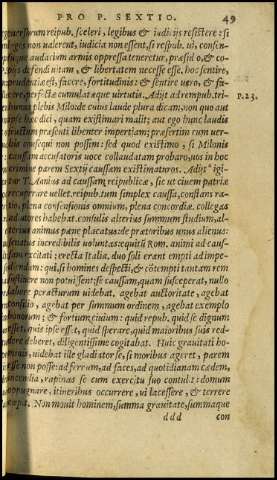 PRO P. SEXTIO. 49
euersurum reipub. sceleri, legibus & iudicijs resistere: si
leges non ualerent, iudicia non essent, si respub. ui, consen-
suque audacium armis oppressa teneretur, præsidio, & co-
pijs defendi uitam, & libertatem necesse esse. hoc sentire,
prudentiæ est, facere, fortitudinis: & sentire uero, & fa-
cere, perfectæ cumulatæque uirtutis. Adijt ad rempub. tri-
bunus plebis Milo: de cuius laude plura dicam, non quo aut
ipse hæc dici, quam existimari malit; aut ego hunc laudis
fructum præsenti libenter impertiam; præsertim cum uer-
bis consequi non possim: sed quod existimo, si Milonis
caussam accusatoris uoce collaudatam probaro, uos in hoc
crimine parem Sextij caussam existimaturos. Adijt igi-
tur T. Annius ad caussam reipublicæ, sic ut ciuem patriæ
recuperare uellet. reipub. tum simplex caussa, constans ra-
tio, plena consensionis omnium, plena concordiæ. collegas
adiutores habebat. consulis alterius summum studium, al-
terius animus pæne placatus: de prætoribus unus alienus:
senatus incredibilis uoluntas: equitū Rom. animi ad caus-
sam excitati: erecta Italia. duo soli erant empti ad impe-
diendum: qui, si homines despecti, & cōtempti tantam rem
sustinere non potuissent; se caussam, quam susceperat, nullo
labore peracturum uidebat. agebat auctoritate, agebat
consilio, agebat per summum ordinem, agebat exemplo
bonorum; & fortium ciuium: quid repub. quid se dignum
esset, quis ipse esset, quid sperare, quid maioribus suis red-
dere deberet, diligentissime cogitabat. Huic grauitati ho-
minis, uidebat ille gladiator se, si moribus ageret, parem
esse non posse: ad ferrum, ad faces, ad quotidianam cædem,
incendia, rapinas se cum exercitu suo contulit: domum
oppugnare, itineribus occurrere, ui lacessere, & terrere
cœpit. Non mouit hominem, summa grauitate, summaque
ddd con
P. 23.